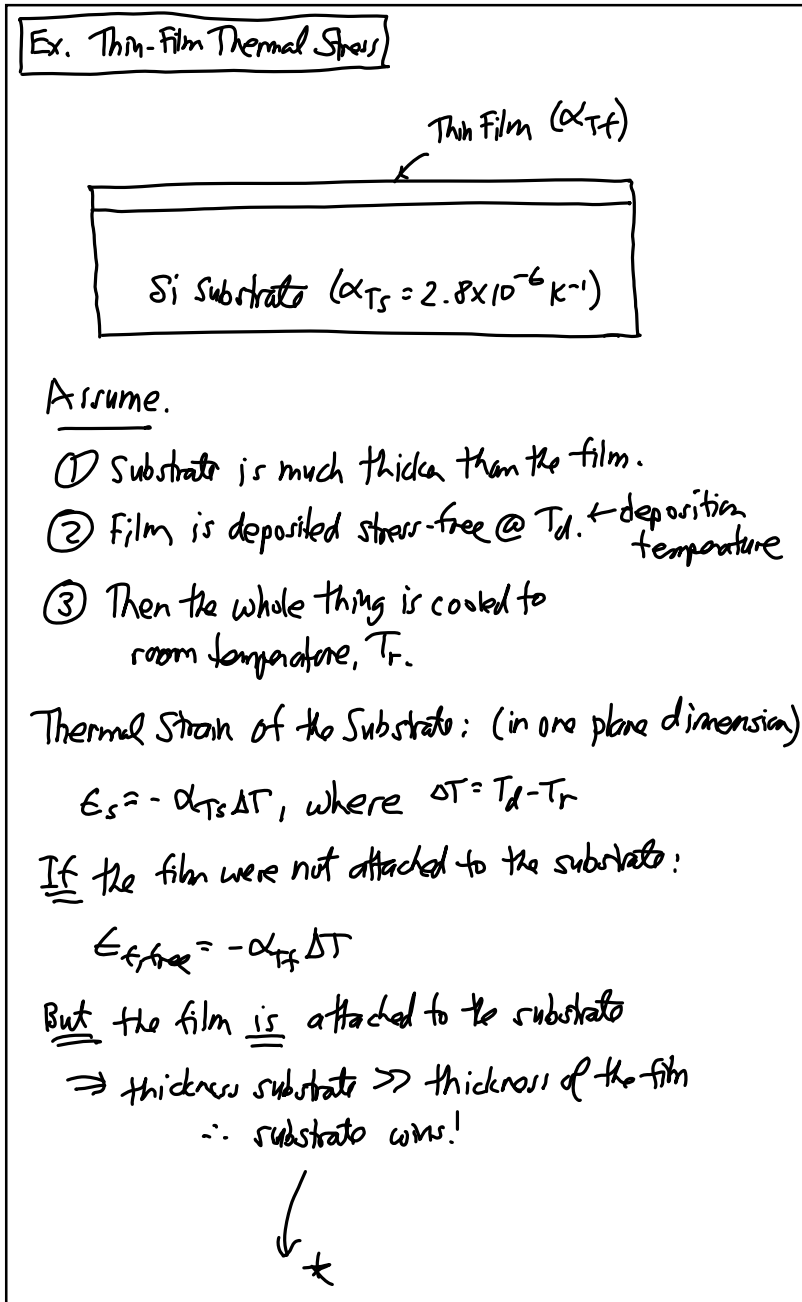 Ex. Thin-Film Thermal Stress
Thin Film (α_Tf)
Si Substrate (α_Ts = 2.8×10⁻⁶ K⁻¹)
Assume.
① Substrate is much thicker than the film.
② Film is deposited stress-free @ T_d. ← deposition
temperature
③ Then the whole thing is cooled to
room temperature, T_r.
Thermal Strain of the Substrate: (in one plane dimension)
ϵ_s = - α_Ts ΔT, where ΔT = T_d - T_r
If the film were not attached to the substrate:
ϵ_f,free = - α_Tf ΔT
But the film is attached to the substrate
⇒ thickness substrate >> thickness of the film
∴ substrate wins!
*